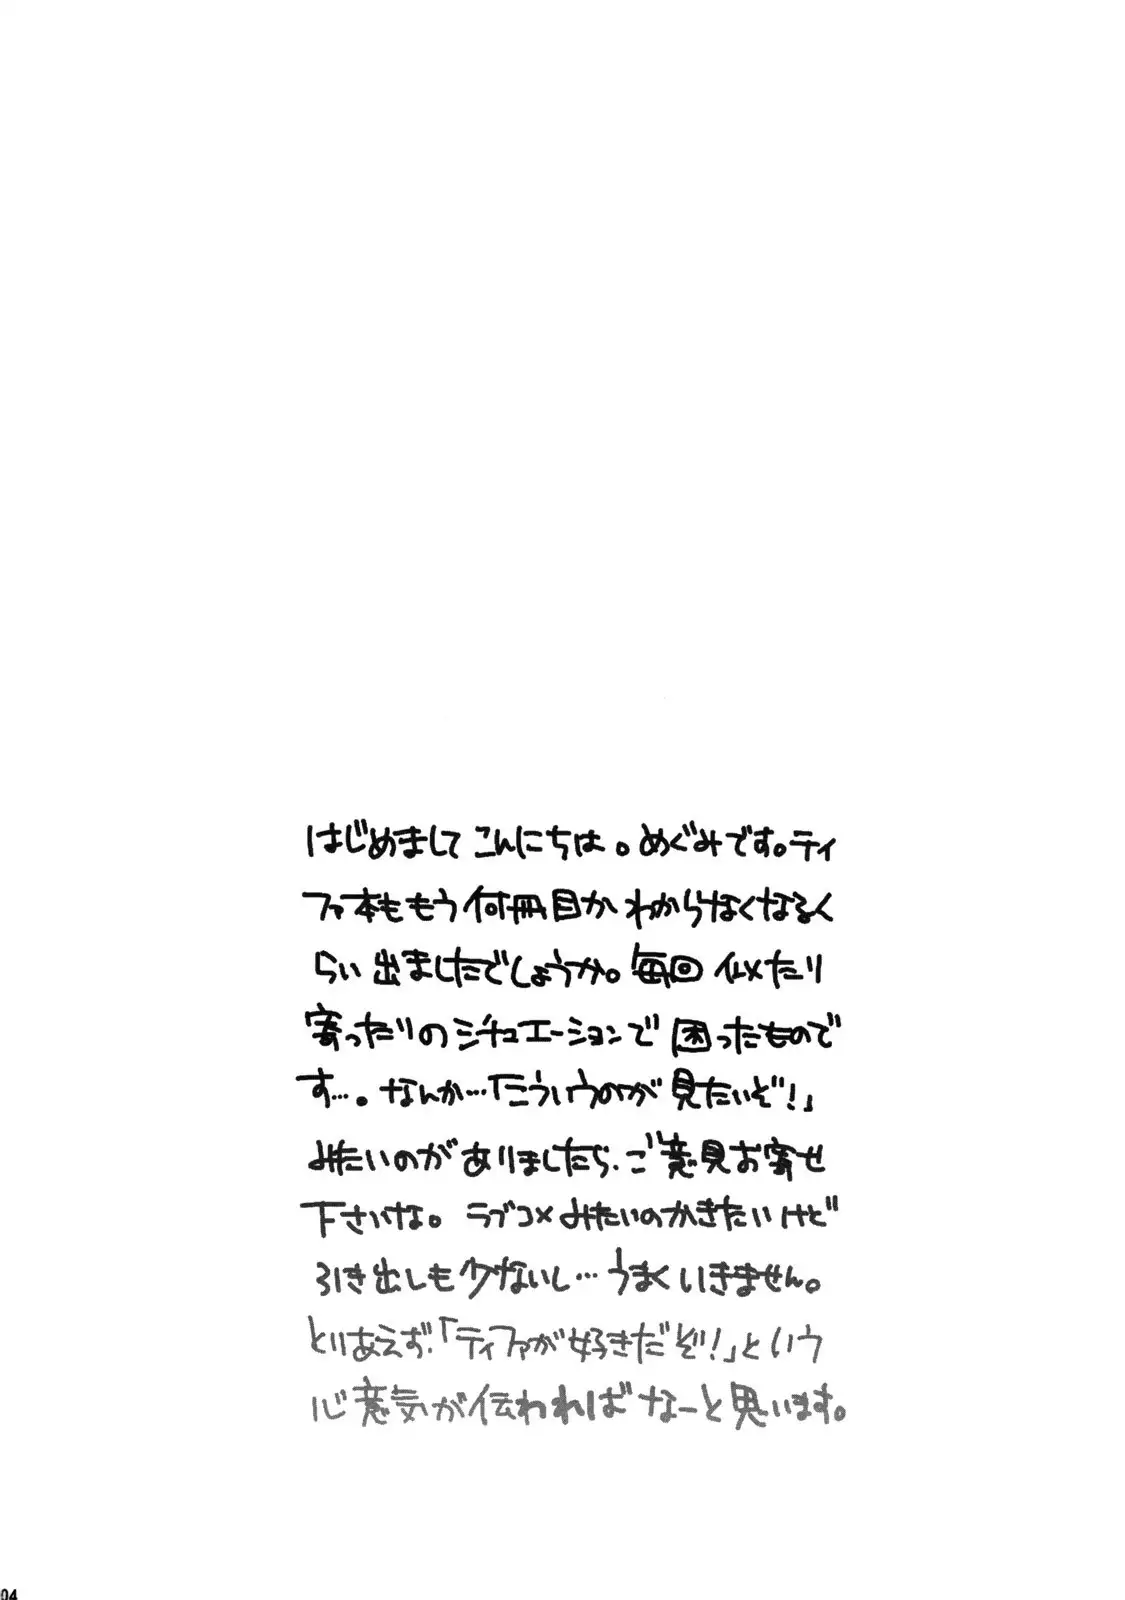 はじめましてこんにちは。めぐみです。ティ
ファ本ももう何冊目かわからなくなるく
らい出ましたでしょうか。毎回似たり
寄ったりのシチュエーションで困ったもので
す…。なんか…「こういうのが見たいぞ!」
みたいのがありましたら、ご意見お寄せ
下さいな。ラブコメみたいのかきたいけど
引き出しも少ないし…うまくいきません。
とりあえず、「ティファが好きだぞ!」という
心意気が伝わればなーと思います。
04